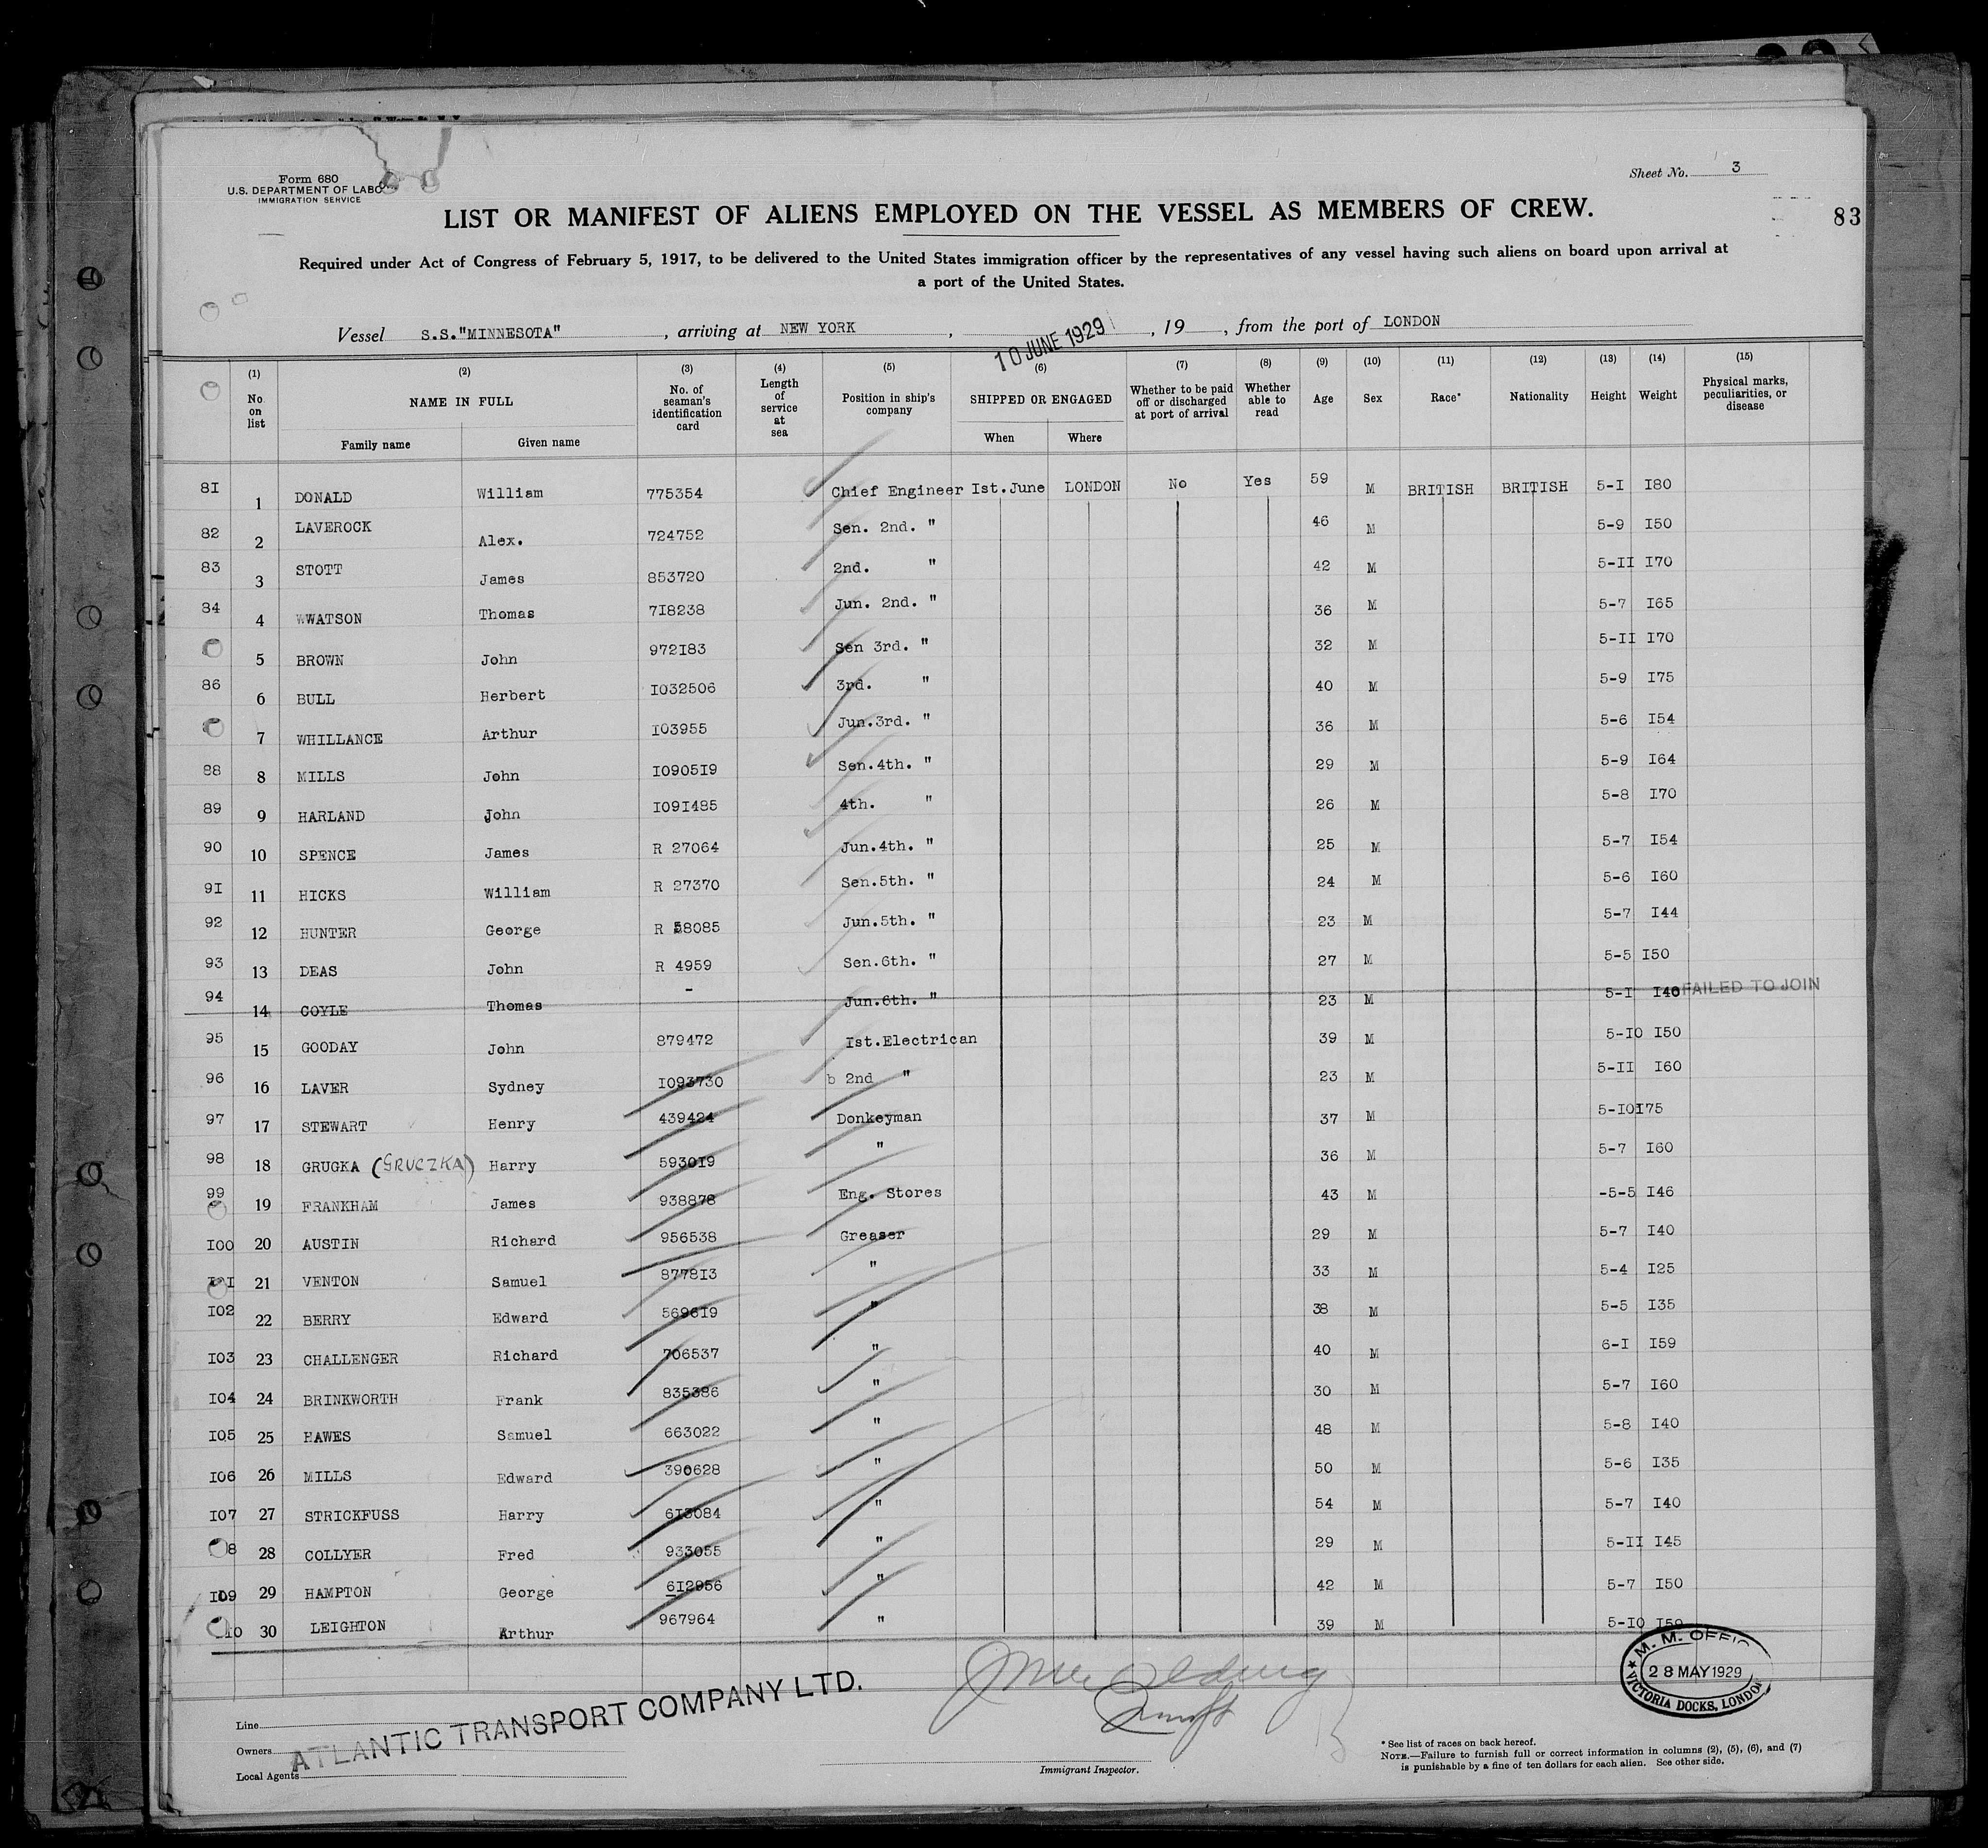 Form 680
U.S. DEPARTMENT OF LABO
IMMIGRATION SERVICE
Sheet No. 3
83
LIST OR MANIFEST OF ALIENS EMPLOYED ON THE VESSEL AS MEMBERS OF CREW.
Required under Act of Congress of February 5, 1917, to be delivered to the United States immigration officer by the representatives of any vessel having such aliens on board upon arrival at
a port of the United States.
Vessel S.S."MINNESOTA", arriving at NEW YORK, 10 JUNE 1929, 19, from the port of LONDON
(1) (2) (3) (4) (5) (6) (7) (8) (9) (10) (11) (12) (13) (14) (15)
No on list NAME IN FULL No. of seaman's identification card Length of service at sea Position in ship's company SHIPPED OR ENGAGED Whether to be paid off or discharged at port of arrival Whether able to read Age Sex Race* Nationality Height Weight Physical marks, peculiarities, or disease
Family name Given name When Where
8I 1 DONALD William 775354 Chief Engineer Ist.June LONDON No Yes 59 M BRITISH BRITISH 5-I I80
82 2 LAVEROCK Alex. 724752 Sen. 2nd. " 46 M 5-9 I50
83 3 STOTT James 853720 2nd. " 42 M 5-II I70
84 4 WWATSON Thomas 7I8238 Jun. 2nd. " 36 M 5-7 I65
5 BROWN John 972I83 Sen 3rd. " 32 M 5-II I70
86 6 BULL Herbert I032506 3rd. " 40 M 5-9 I75
7 WHILLANCE Arthur I03955 Jun.3rd. " 36 M 5-6 I54
88 8 MILLS John I0905I9 Sen.4th. " 29 M 5-9 I64
89 9 HARLAND John I09I485 4th. " 26 M 5-8 I70
90 10 SPENCE James R 27064 Jun.4th. " 25 M 5-7 I54
9I 11 HICKS William R 27370 Sen.5th. " 24 M 5-6 I60
92 12 HUNTER George R 58085 Jun.5th. " 23 M 5-7 I44
93 13 DEAS John R 4959 Sen.6th. " 27 M 5-5 I50
94 14 COYLE Thomas - Jun.6th. " 23 M 5-I I40 FAILED TO JOIN
95 15 GOODAY John 879472 Ist.Electrican 39 M 5-I0 I50
96 16 LAVER Sydney I093730 b 2nd " 23 M 5-II I60
97 17 STEWART Henry 439424 Donkeyman 37 M 5-I0I75
98 18 GRUGKA (GRUCZKA) Harry 5930I9 " 36 M 5-7 I60
99 19 FRANKHAM James 938878 Eng. Stores 43 M -5-5 I46
I00 20 AUSTIN Richard 956538 Greaser 29 M 5-7 I40
I0I 21 VENTON Samuel 8778I3 " 33 M 5-4 I25
I02 22 BERRY Edward 5696I9 " 38 M 5-5 I35
I03 23 CHALLENGER Richard 706537 " 40 M 6-I I59
I04 24 BRINKWORTH Frank 835386 " 30 M 5-7 I60
I05 25 HAWES Samuel 663022 " 48 M 5-8 I40
I06 26 MILLS Edward 390628 " 50 M 5-6 I35
I07 27 STRICKFUSS Harry 6I3084 " 54 M 5-7 I40
8 28 COLLYER Fred 933055 " 29 M 5-II I45
I09 29 HAMPTON George 6I2956 " 42 M 5-7 I50
I0 30 LEIGHTON Arthur 967964 " 39 M 5-I0 I50
M. M. OFFIC
28 MAY 1929
VICTORIA DOCKS, LONDON
Line
Owners
Local Agents
ATLANTIC TRANSPORT COMPANY LTD.
Immigrant Inspector.
* See list of races on back hereof.
NOTE.—Failure to furnish full or correct information in columns (2), (5), (6), and (7)
is punishable by a fine of ten dollars for each alien. See other side.